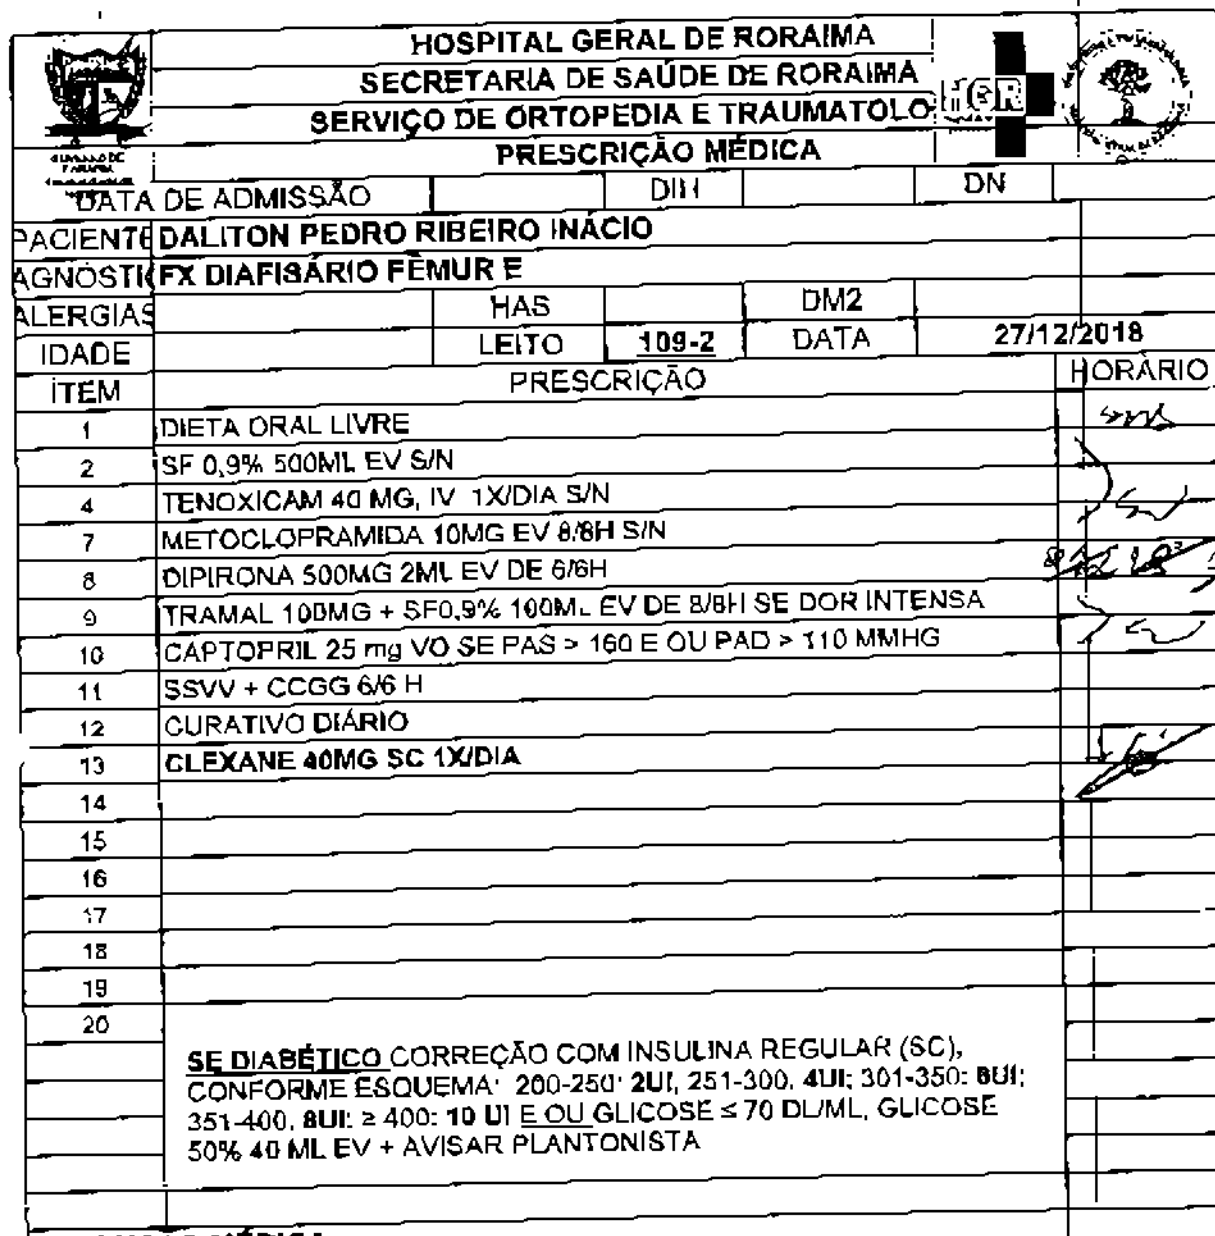 HOSPITAL GERAL DE RORAIMA
SECRETARIA DE SAÚDE DE RORAIMA
SERVIÇO DE ORTOPEDIA E TRAUMATOLO
HGR
PRESCRIÇÃO MÉDICA
DATA DE ADMISSÃO DIH DN
PACIENTE DALITON PEDRO RIBEIRO INÁCIO
AGNÓSTI FX DIAFISÁRIO FÊMUR E
ALERGIAS HAS DM2
IDADE LEITO 109-2 DATA 27/12/2018
ITEM PRESCRIÇÃO HORÁRIO
1 DIETA ORAL LIVRE
2 SF 0,9% 500ML EV S/N
4 TENOXICAM 40 MG, IV 1X/DIA S/N
7 METOCLOPRAMIDA 10MG EV 8/8H S/N
8 DIPIRONA 500MG 2ML EV DE 6/6H
9 TRAMAL 100MG + SF0,9% 100ML EV DE 8/8H SE DOR INTENSA
10 CAPTOPRIL 25 mg VO SE PAS > 160 E OU PAD > 110 MMHG
11 SSVV + CCGG 6/6 H
12 CURATIVO DIÁRIO
13 CLEXANE 40MG SC 1X/DIA
14
15
16
17
18
19
20
SE DIABÉTICO CORREÇÃO COM INSULINA REGULAR (SC),
CONFORME ESQUEMA: 200-250: 2UI, 251-300, 4UI; 301-350: 6UI;
351-400, 8UI; ≥ 400: 10 UI E OU GLICOSE ≤ 70 DL/ML, GLICOSE
50% 40 ML EV + AVISAR PLANTONISTA